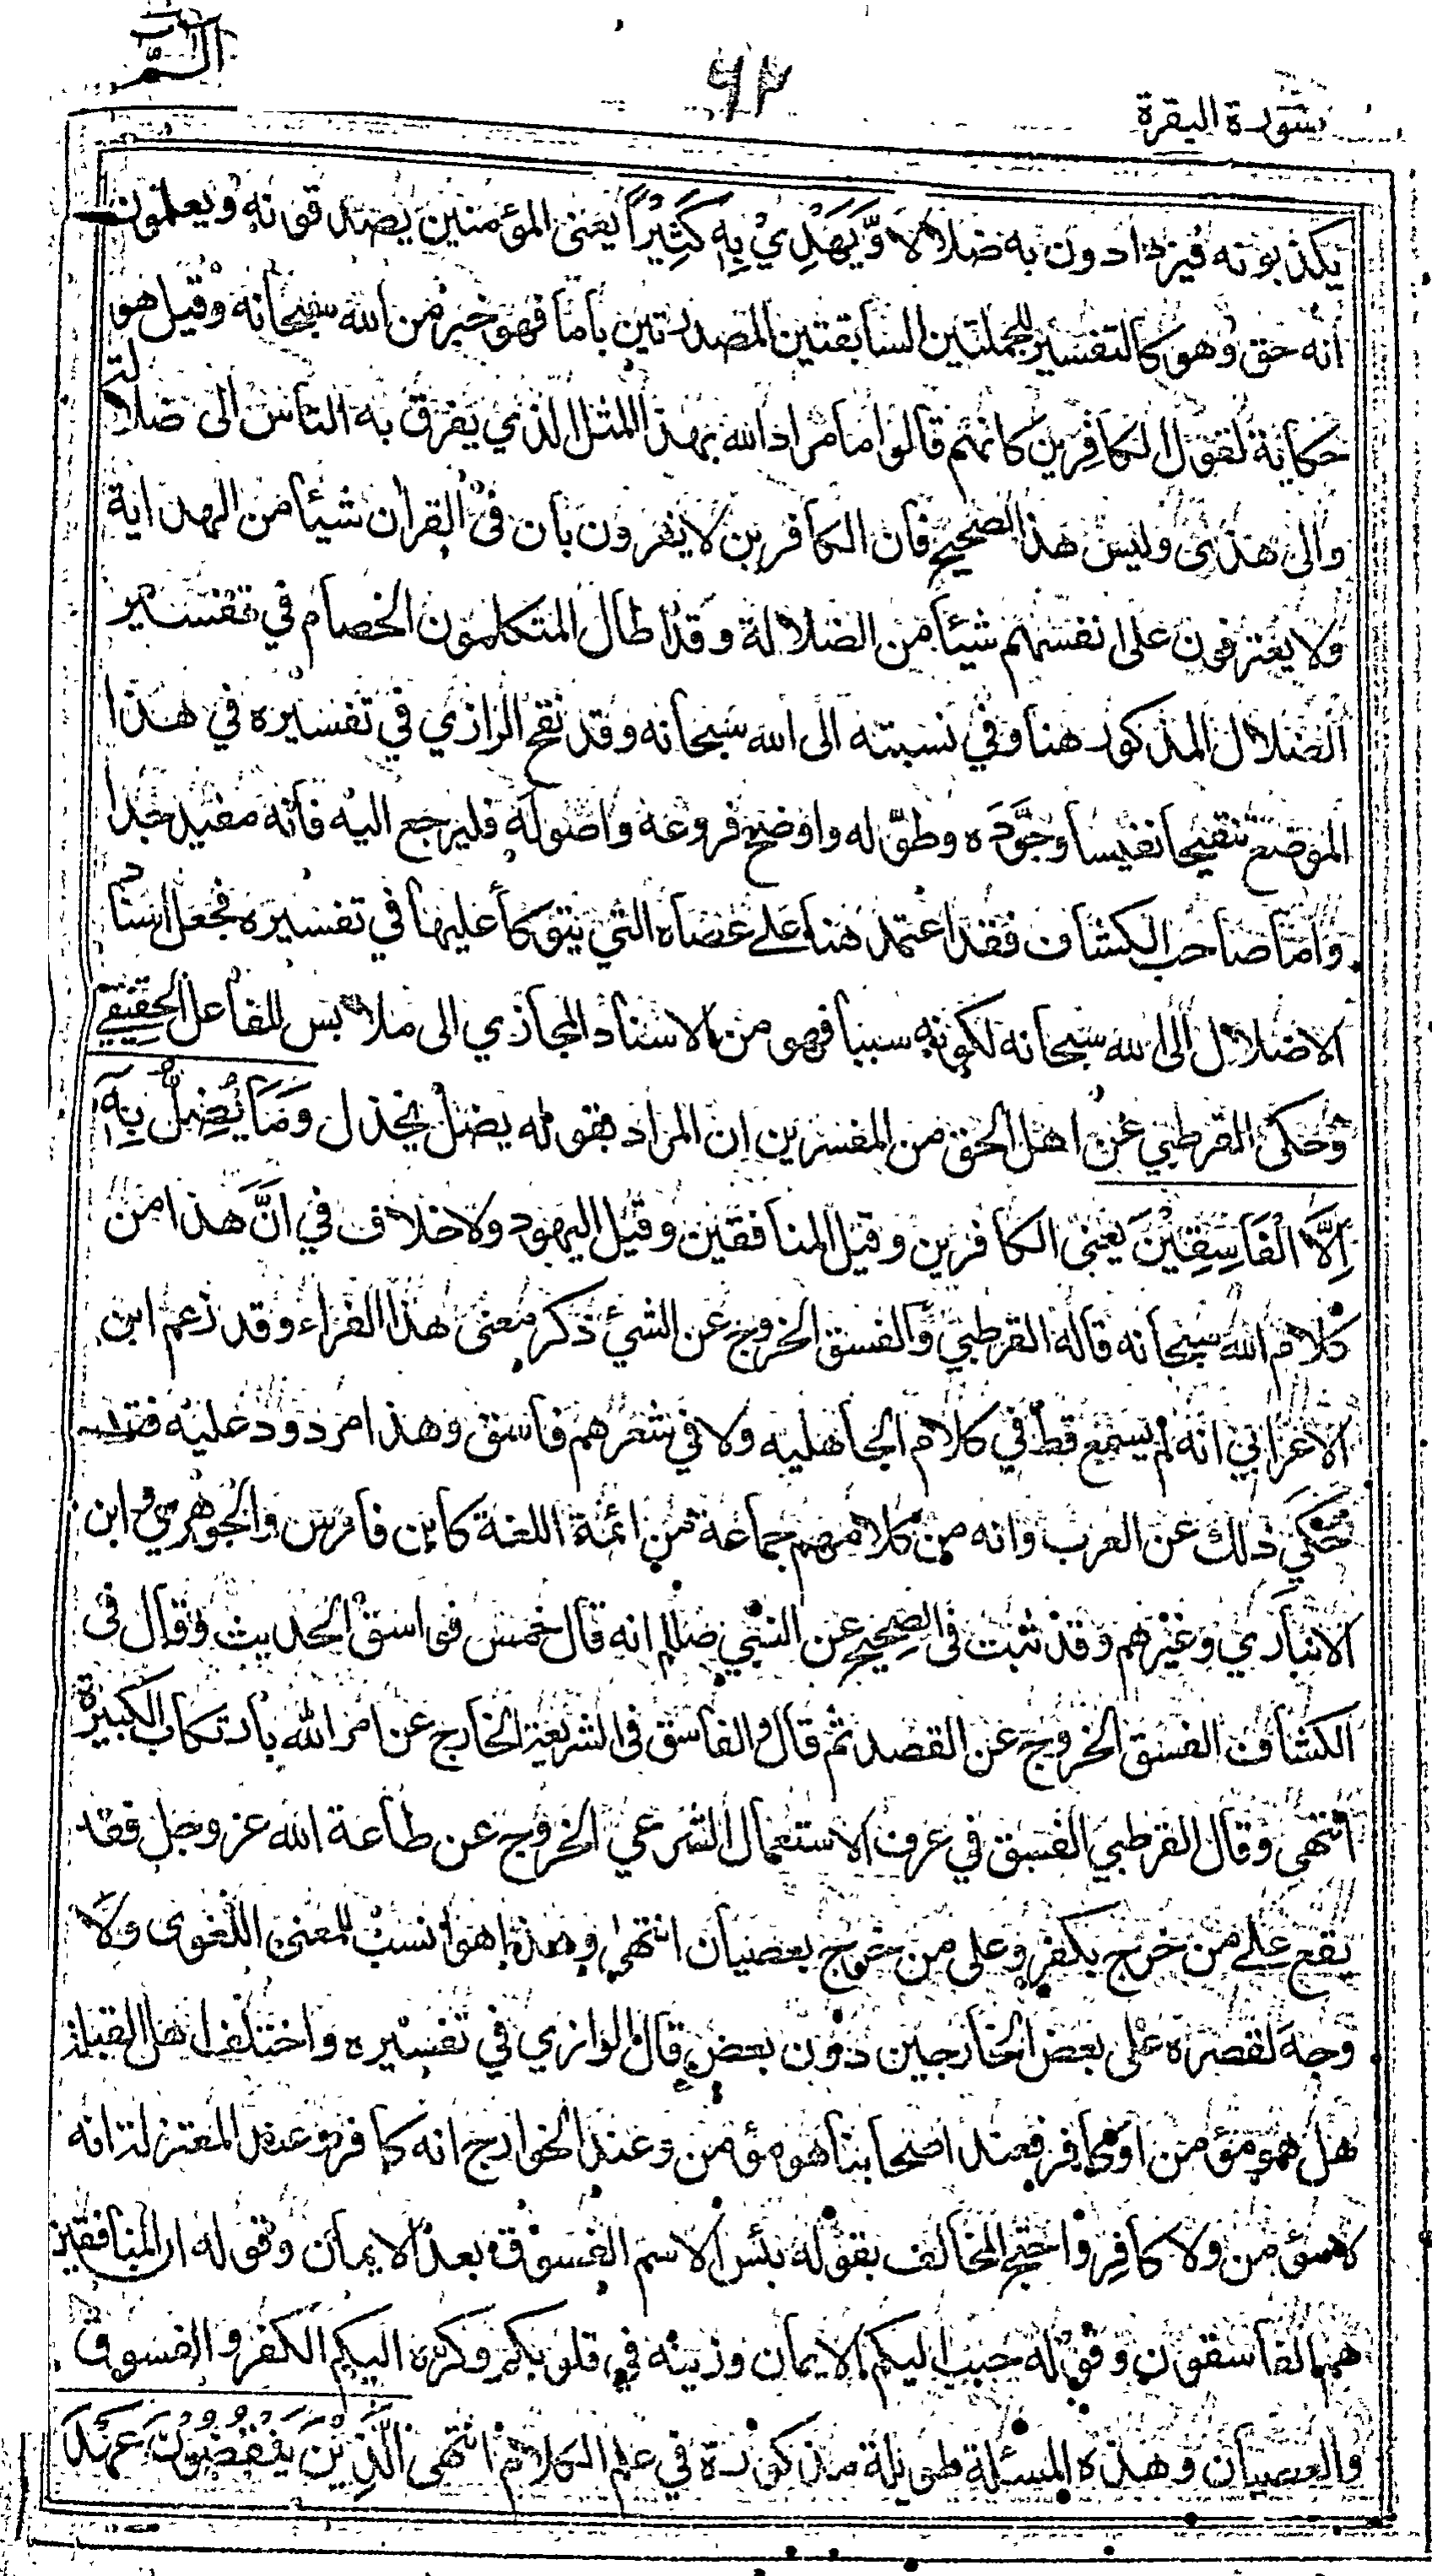 الٓمّٓ
٦٢
سورة البقرة
يكذبونه فيزدادون به ضلالا وَّيَهْدِيْ بِهٖ كَثِيْرًا يعنى المؤمنين يصدقونه ويعلمون
انه حق وهو كالتفسير للجملتين السابقتين المصدرتين باما فهو خبر من الله سبحانه وقيل هو
حكاية لقول الكافرين كانهم قالوا ما مراد الله بهذا المثل الذي يفرق به الناس الى ضلالة
والى هدى وليس هذا الصحيح فان الكافرين لا يقرون بان فى القران شيئا من الهداية
ولا يعترفون على انفسهم شيئا من الضلالة وقد اطال المتكلمون الخصام في تفسير
الضلال المذكور هنا وفي نسبته الى الله سبحانه وقد نقح الرازي في تفسيره في هذا
الموضع تنقيحا نفيسا وجَوَّده وطوّله واوضح فروعه واصوله فليرجع اليه فانه مفيد جدا
واما صاحب الكشاف فقد اعتمد هنا على عصاه التي يتوكأ عليها في تفسيره فجعل اسناد
الاضلال الى الله سبحانه لكونه سببا فهو من الاسناد المجازي الى ملابس للفاعل الحقيقي
وحكى القرطبي عن اهل الحق من المفسرين ان المراد بقوله يضل يخذل وَمَا يُضِلُّ بِهٖٓ
اِلَّا الْفَاسِقِيْنَ يعنى الكافرين وقيل المنافقين وقيل اليهود ولا خلاف في انَّ هذا من
كلام الله سبحانه قاله القرطبي والفسق الخروج عن الشئ ذكر معنى هذا الفراء وقد زعم ابن
الاعرابي انه لم يسمع قط في كلام الجاهليه ولا في شعرهم فاسق وهذا مردود عليه فقد
حكى ذلك عن العرب وانه من كلامهم جماعة من ائمة اللغة كابن فارس والجوهري وابن
الانباري وغيرهم وقد ثبت فى الصحيح عن النبي صللم انه قال خمس فواسق الحديث وقال فى
الكشاف الفسق الخروج عن القصد ثم قال والفاسق فى الشريعة الخارج عن امر الله بارتكاب الكبيرة
انتهى وقال القرطبي الفسق في عرف الاستعمال الشرعي الخروج عن طاعة الله عز وجل فقد
يقع على من خرج بكفر وعلى من خرج بعصيان انتهى وهذا هو انسب للمعنى اللغوى ولا
وجه لقصره على بعض الخارجين دون بعض قال الرازي في تفسيره واختلف اهل القبلة
هل هو مؤمن او كافر فعند اصحابنا هو مؤمن وعند الخوارج انه كافر وعند المعتزلة انه
لا مؤمن ولا كافر واحتج المخالف بقوله بئس الاسم الفسوق بعد الايمان وقوله ان المنافقين
هم الفاسقون وقوله حبب اليكم الايمان وزينه في قلوبكم وكره اليكم الكفر والفسوق
والعصيان وهذه المسئلة طويلة مذكورة في علم الكلام انتهى الَّذِيْنَ يَنْقُضُوْنَ عَهْدَ